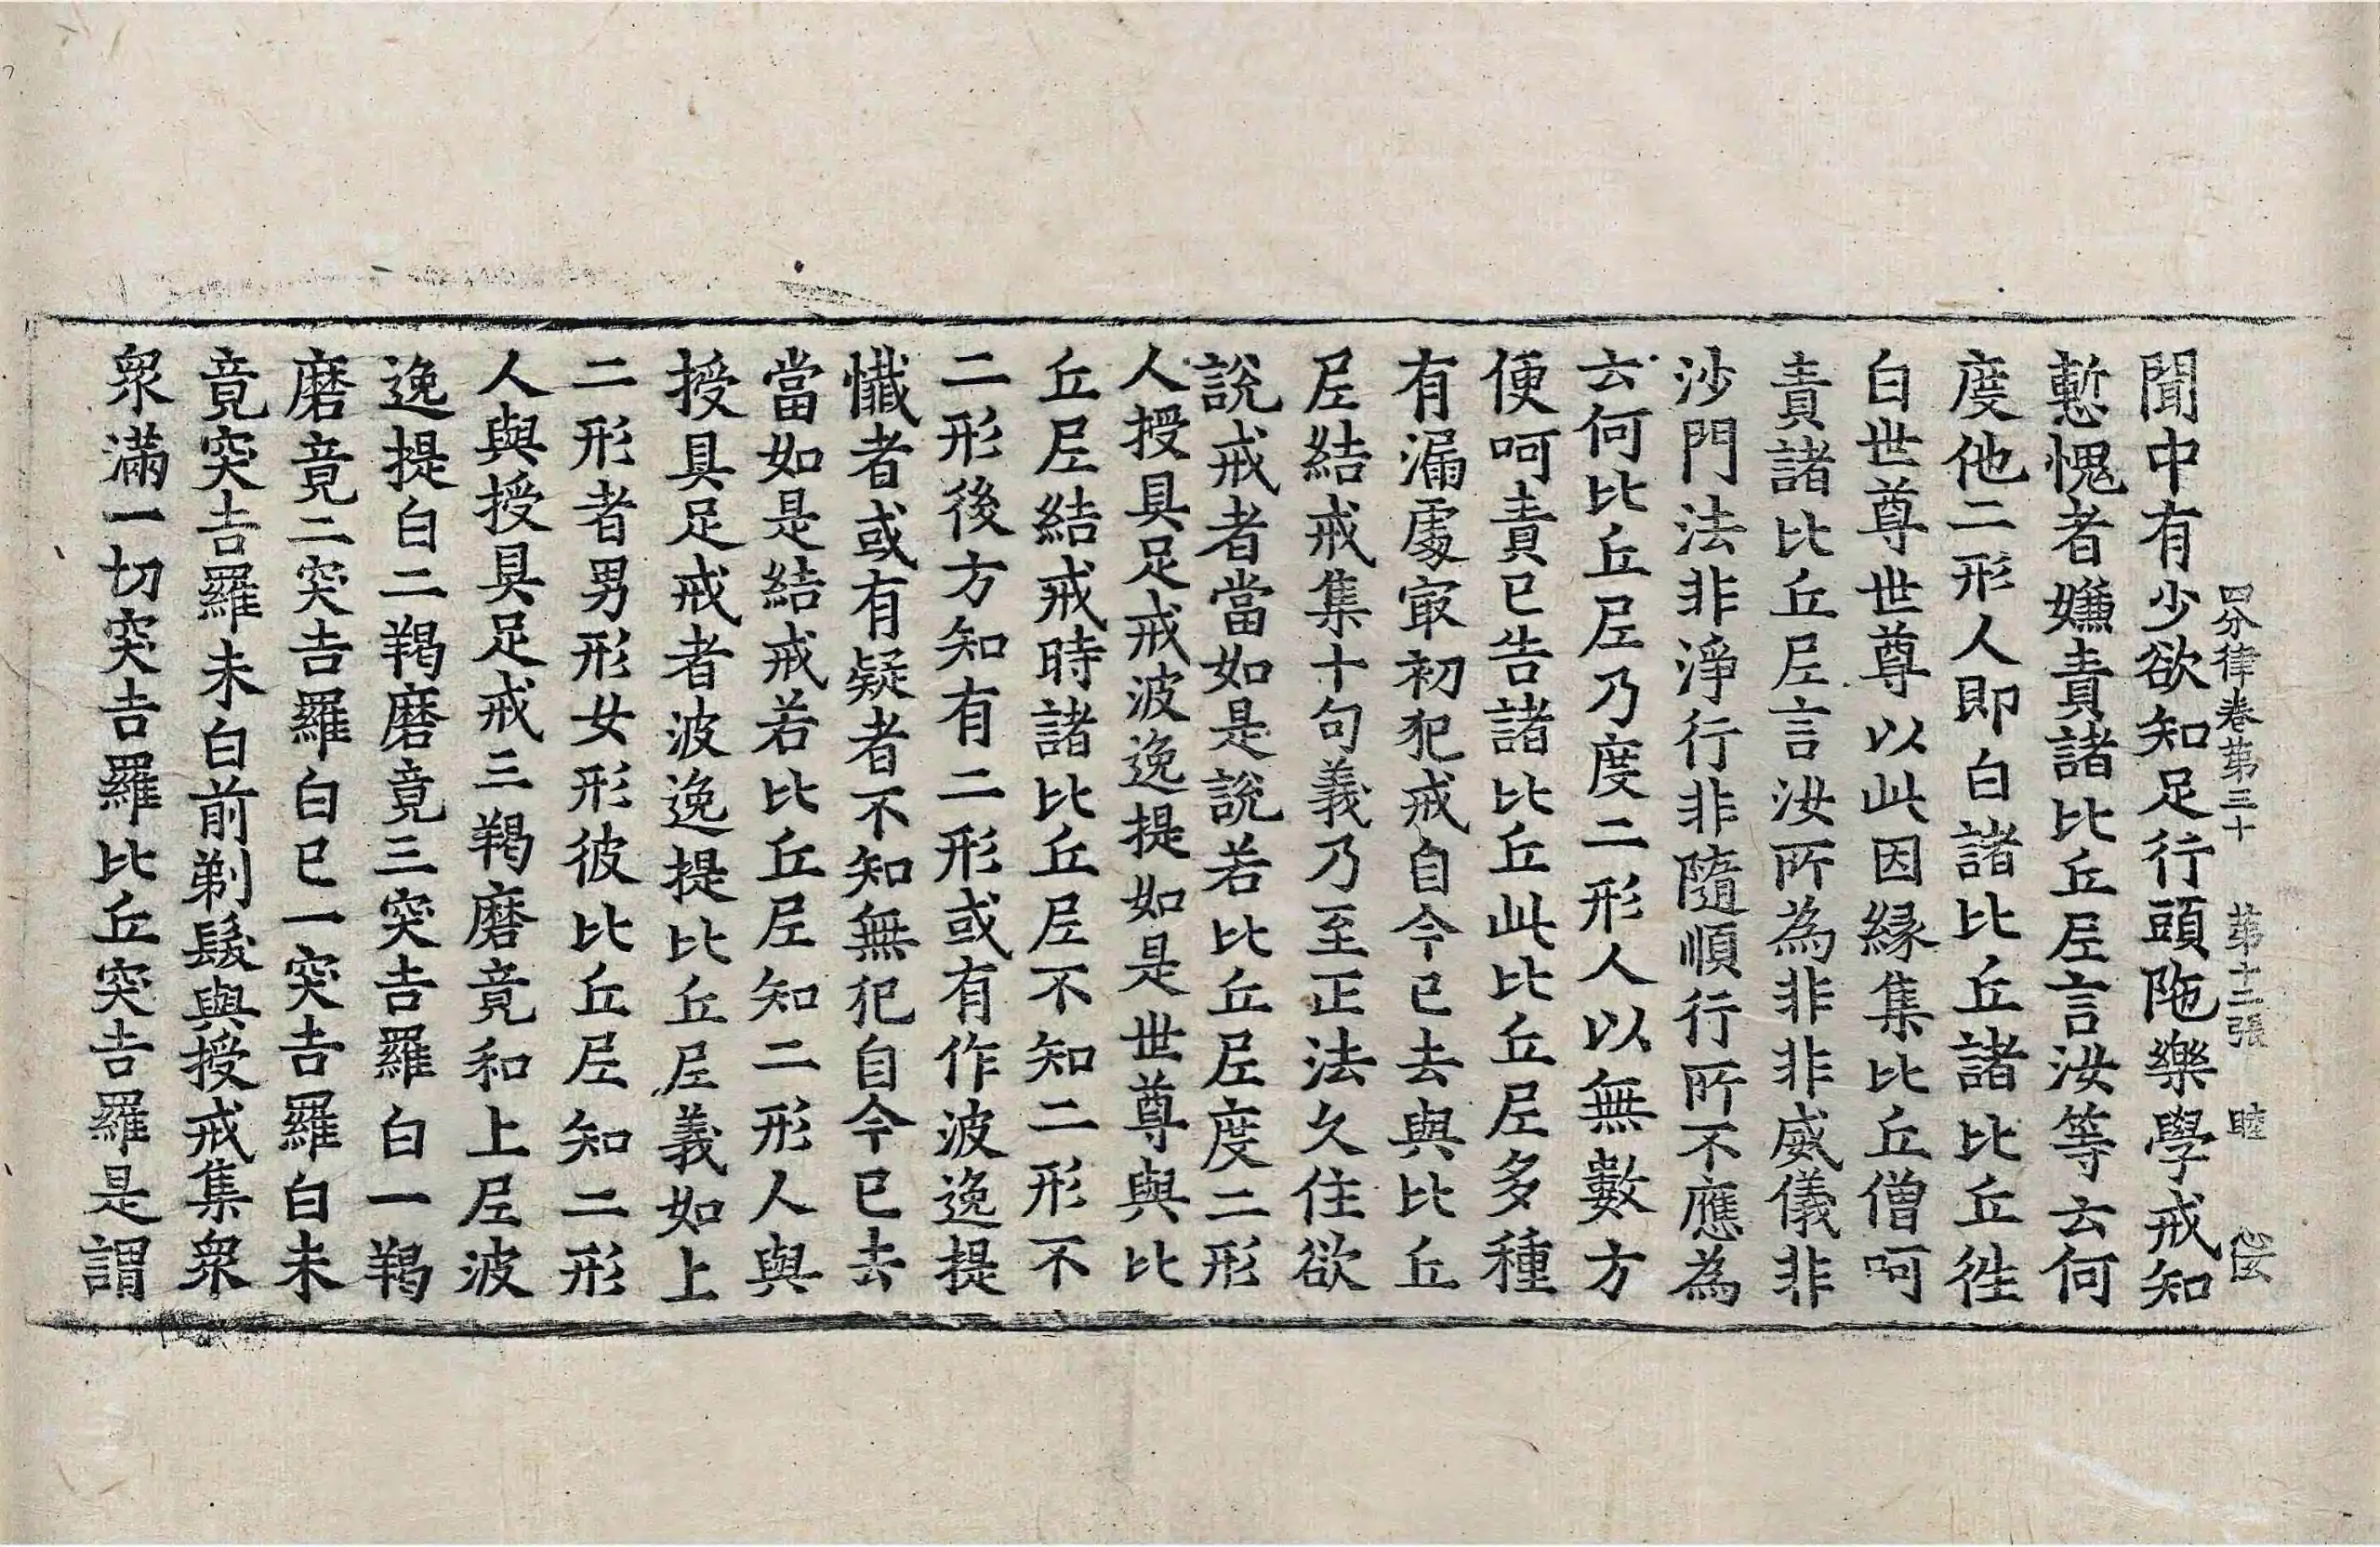 四分律卷第三十 第十二張 睦
聞中有少欲知足行頭陁樂學戒知
慙愧者嫌責諸比丘𡰱言汝等云何
度他二形人即白諸比丘諸比丘徃
白世尊世尊以此因縁集比丘僧呵
責諸比丘𡰱言汝所為非非威儀非
沙門法非淨行非隨順行所不應為
云何比丘𡰱乃度二形人以無數方
便呵責已告諸比丘此比丘𡰱多種
有漏處㝡初犯戒自今已去與比丘
𡰱結戒集十句義乃至正法久住欲
說戒者當如是說若比丘𡰱度二形
人授具足戒波逸提如是世尊與比
丘𡰱結戒時諸比丘𡰱不知二形不
二形後方知有二形或有作波逸提
懺者或有疑者不知無犯自今已去
當如是結戒若比丘𡰱知二形人與
授具足戒者波逸提比丘𡰱義如上
二形者男形女形彼比丘𡰱知二形
人與授具足戒三羯磨竟和上𡰱波
逸提白二羯磨竟三突吉羅白一羯
磨竟二突吉羅白已一突吉羅白未
竟突吉羅未白前剃髮與授戒集衆
衆滿一切突吉羅比丘突吉羅是謂